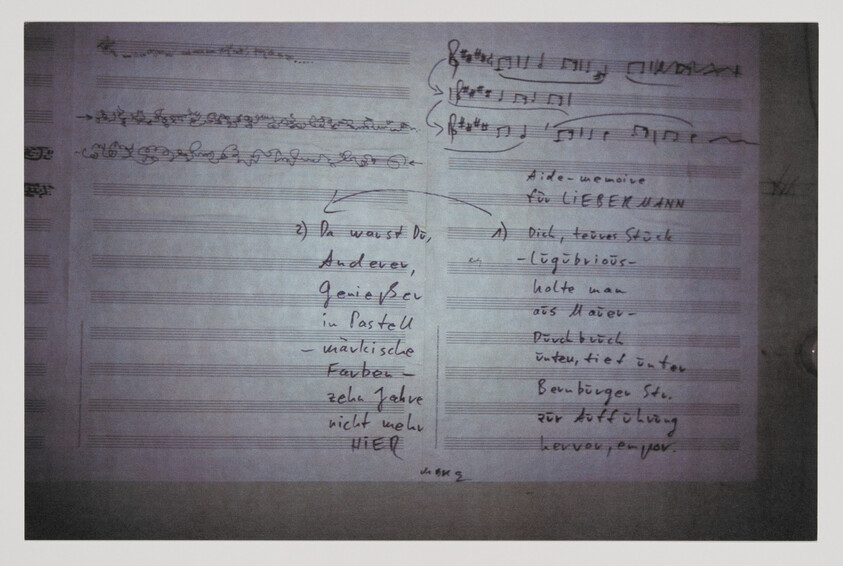 Aide-memoire
für LiEBERMANN
1) Dich, teures Stück
-lugubrious-
holte man
aus Mauer-
Durchbruch
unten, tief unter
Bernburger Str.
zur Aufführung
hervor, empor.
2) Da warst Du,
Anderer,
Genießer
in Pastell
- märkische
Farben -
zehn Jahre
nicht mehr
HiER